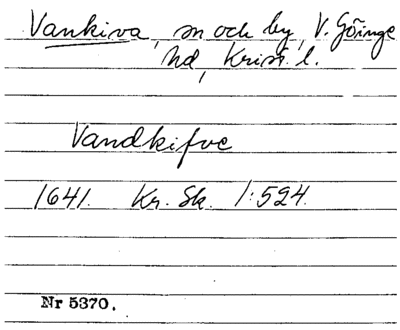 Vankiva, sn och by, V. Göinge
hd, Krist. l.
Vandkifve
1641. Kr. Sk. 1:524.
Nr 5370.